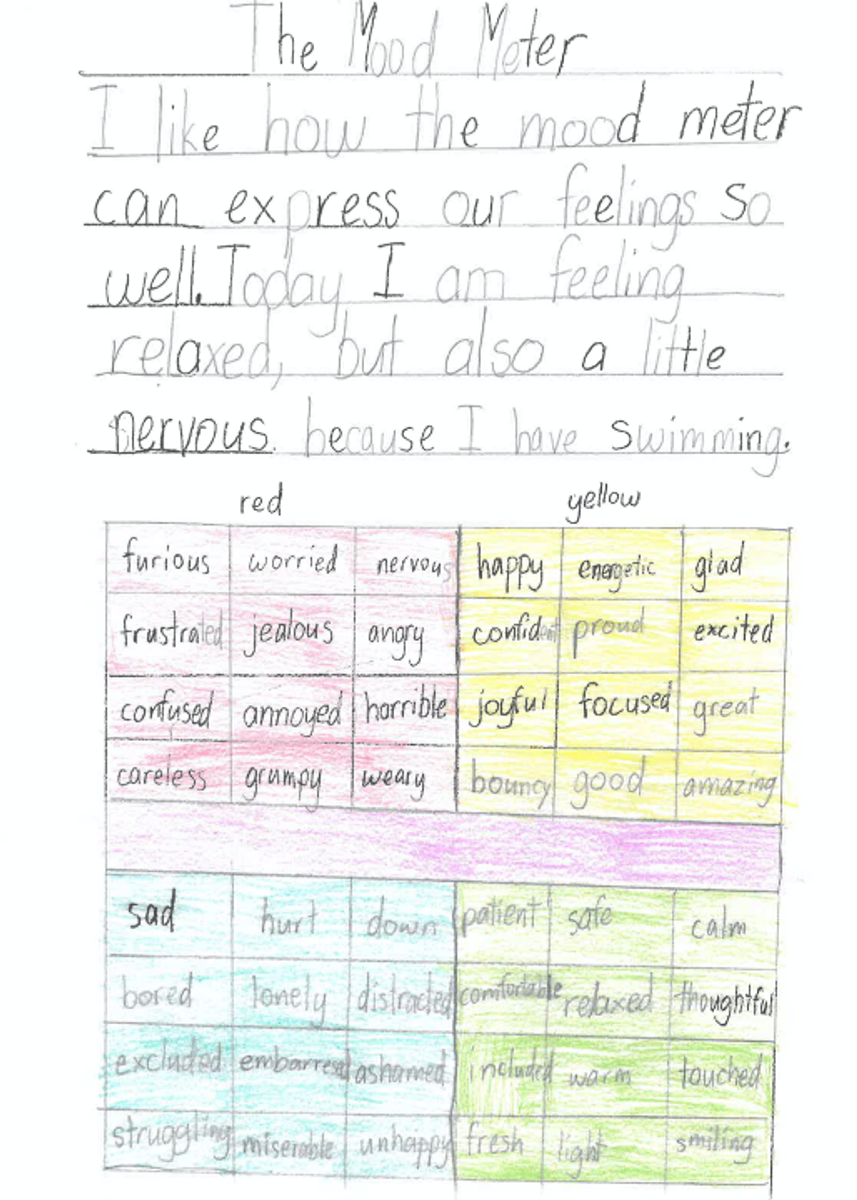 The Mood Meter
I like how the mood meter
can express our feelings so
well. Today I am feeling
relaxed, but also a little
nervous. because I have swimming.
red yellow
furious worried nervous happy energetic glad
frustrated jealous angry confident proud excited
confused annoyed horrible joyful focused great
careless grumpy weary bouncy good amazing
sad hurt down patient safe calm
bored lonely distracted comfortable relaxed thoughtful
excluded embarresed ashamed included warm touched
struggling miserable unhappy fresh light smiling